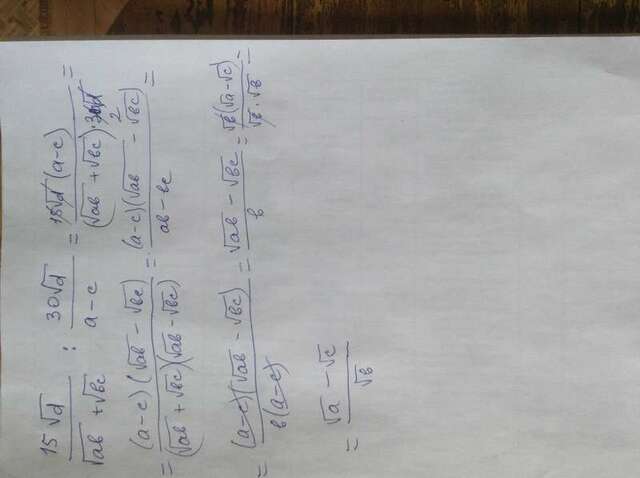 15√d / (√ab + √bc) : 30√d / (a-c) = 15√d (a-c) / ((√ab + √bc)·30√d) 2 =
= (a-c)(√ab - √bc) / ((√ab + √bc)(√ab - √bc)) = (a-c)(√ab - √bc) / (ab - bc) =
= (a-c)(√ab - √bc) / (b(a-c)) = (√ab - √bc) / b = √b(√a - √c) / (√b · √b) =
= (√a - √c) / √b